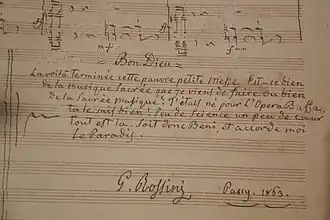 mf
fmo
= Bon Dieu =
La voilà terminée cette pauvre petite Messe. Est-ce bien
de la musique Sacrée que je viens de faire ou bien
de la Sacrée musique? J'étais né pour L'Opera Buffa,
tu le sais bien! Peu de science un peu de cœur
tout est là. Sois donc Beni, et accorde moi
Le Paradis.
G. Rossini
Passy. 1863.